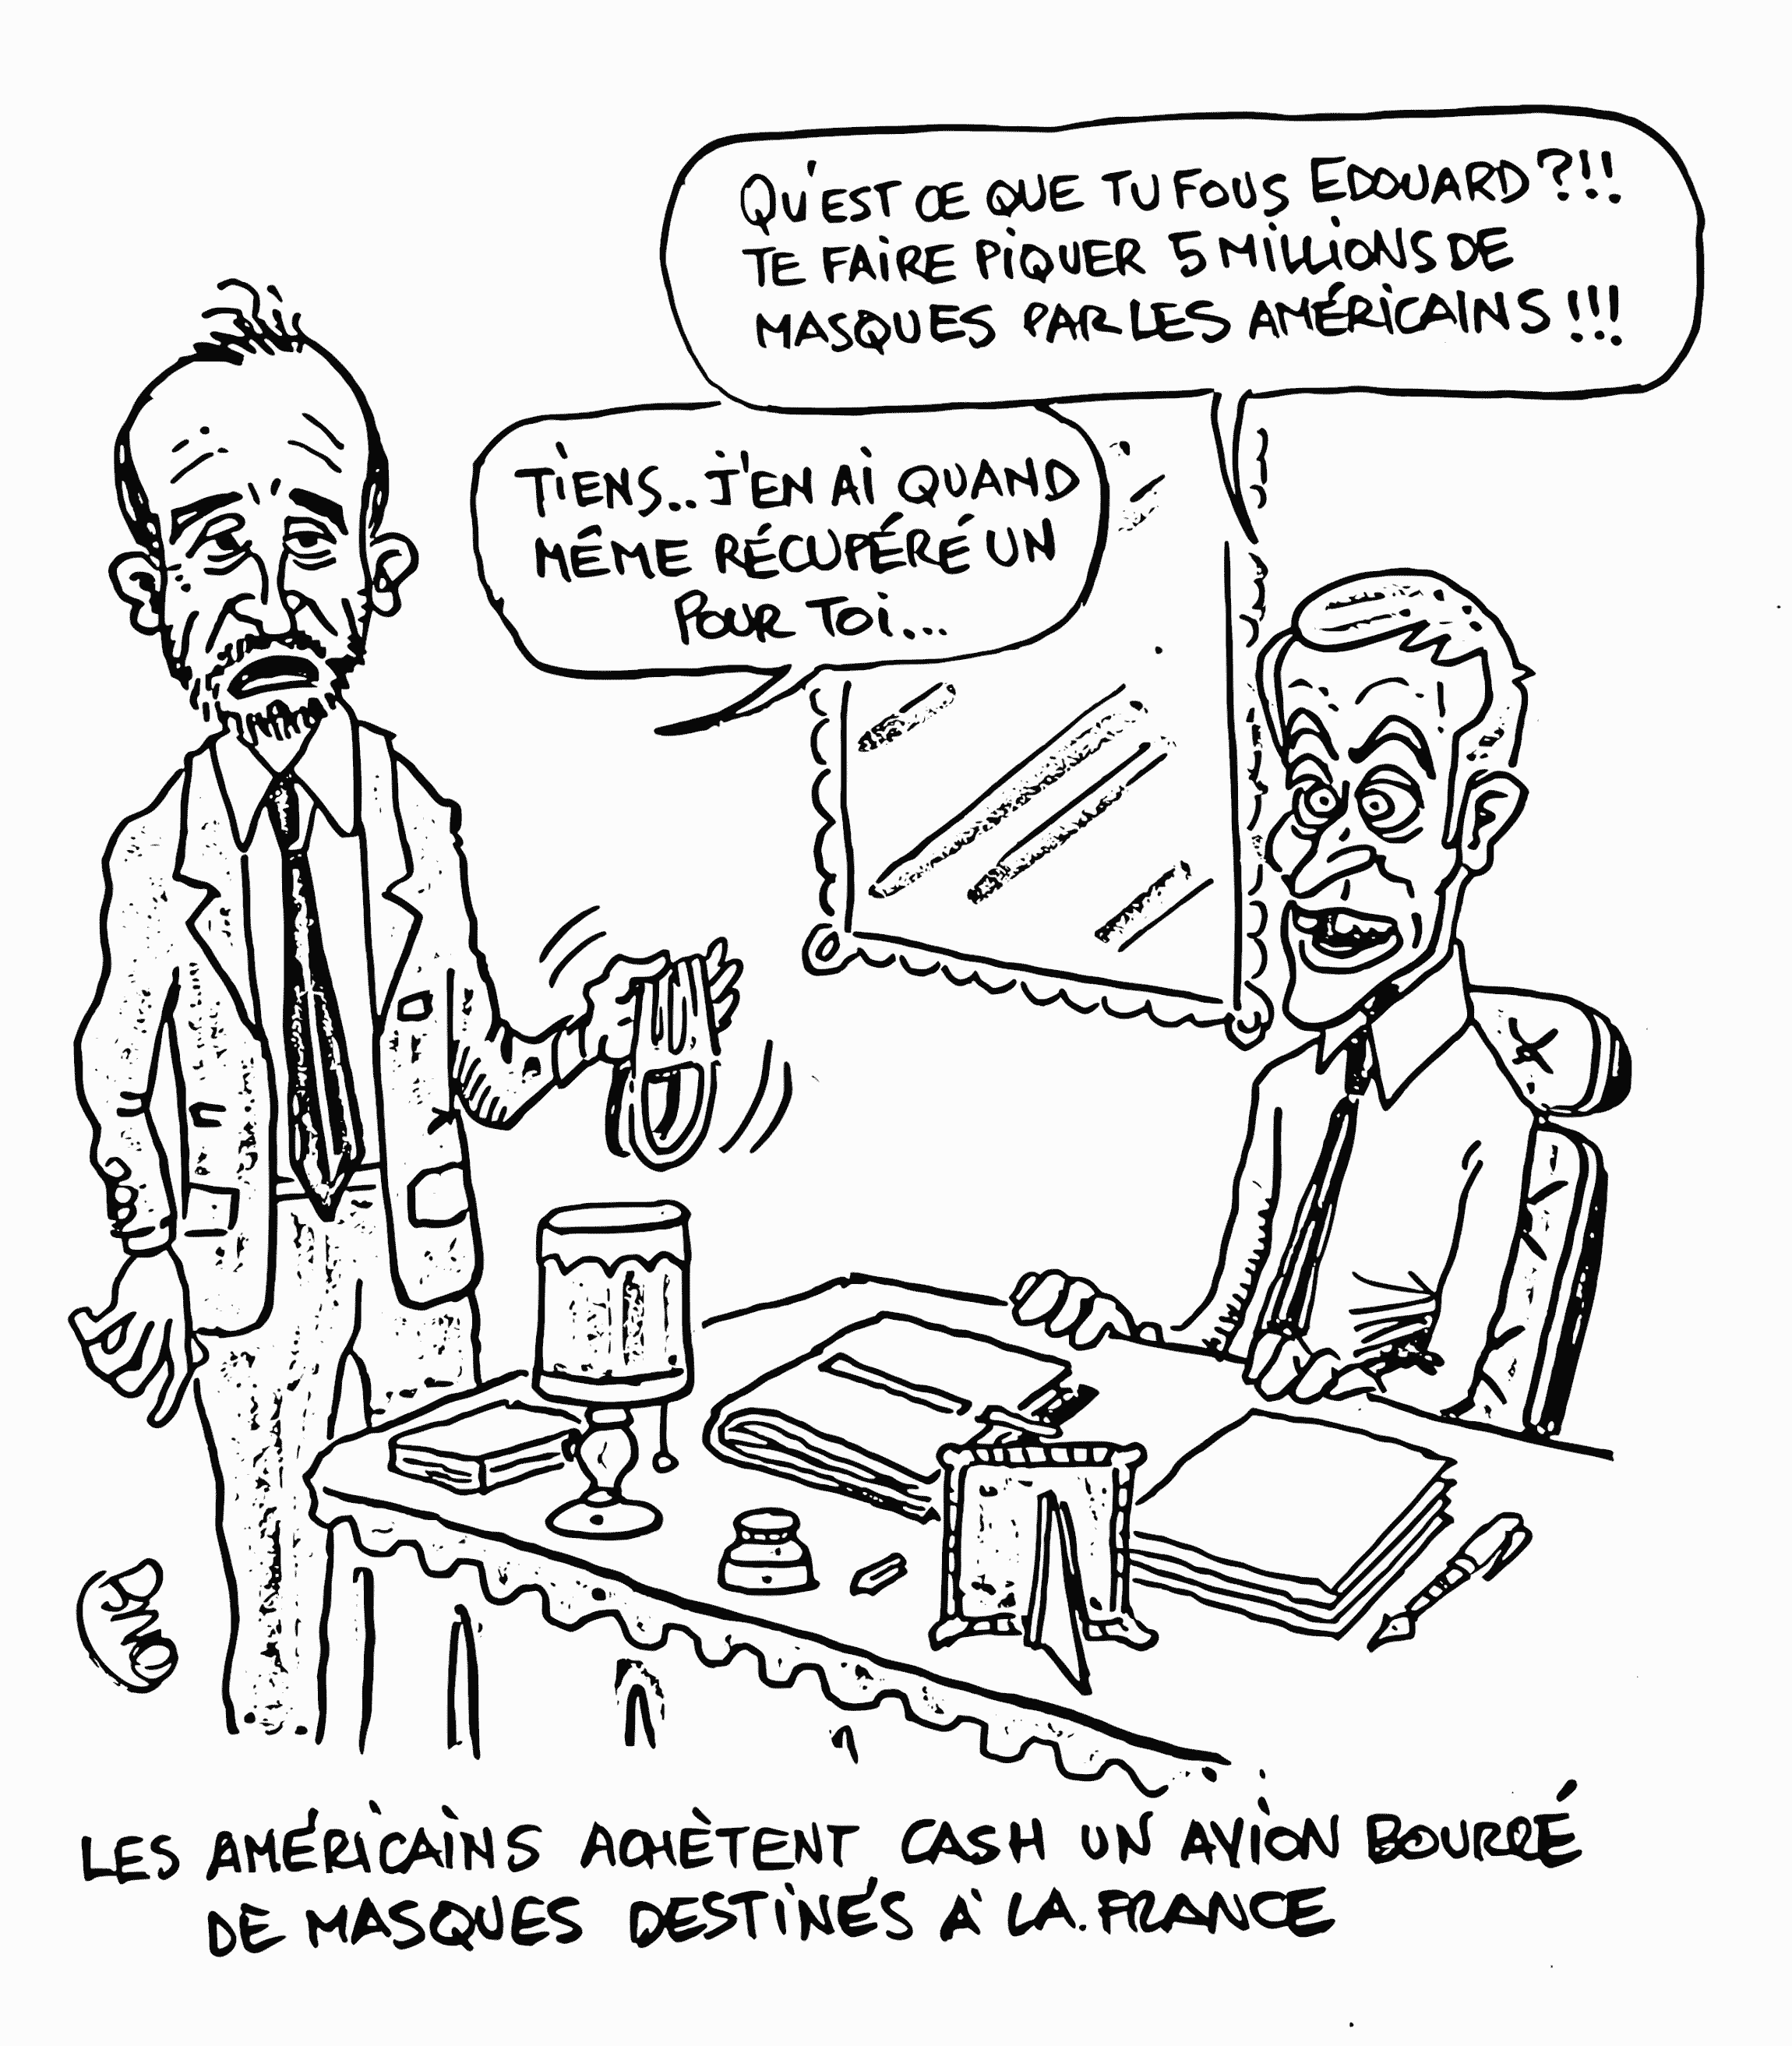 QU'EST CE QUE TU FOUS EDOUARD ?!!
TE FAIRE PIQUER 5 MILLIONS DE
MASQUES PAR LES AMÉRICAINS !!!
TIENS.. J'EN AI QUAND
MÊME RÉCUPÉRÉ UN
POUR TOI...
LES AMÉRICAINS ACHÈTENT CASH UN AVION BOURRÉ
DE MASQUES DESTINÉS À LA.FRANCE